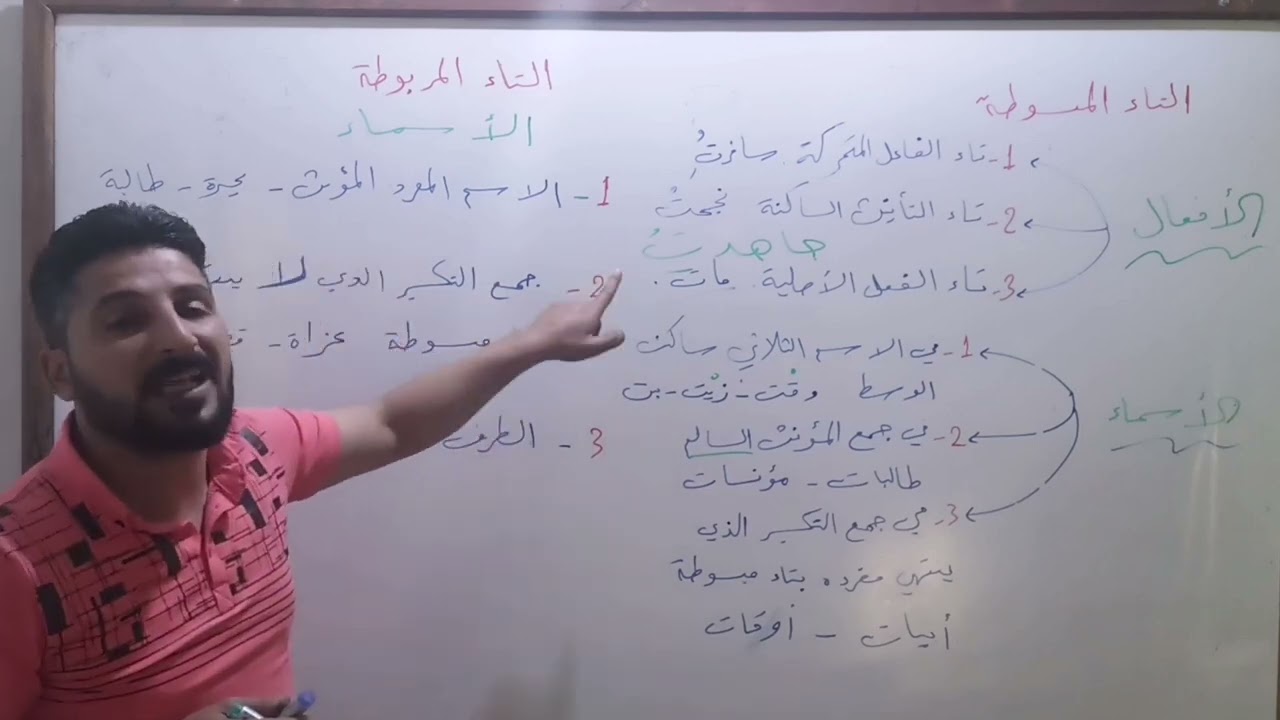 التاء المبسوطة
الأفعال
1- تاء الفاعل المتحركة. سافرتُ
2- تاء التأنيث الساكنة نجحتْ
جاهدتُ
3- تاء الفعل الأصلية. مات.
الأسماء
1- في الاسم الثلاثي ساكن
الوسط وقْت - زيْت - بت
2- في جمع المؤنث السالم
طالبات - مؤنسات
3- في جمع التكسير الذي
ينتهي مفرده بتاء مبسوطة
أبيات - أوقات
التاء المربوطة
الأسماء
1- الاسم المفرد المؤنث - طالبة
2- جمع التكسير الذي لا
مبسوطة غزاة -
3- الظرف